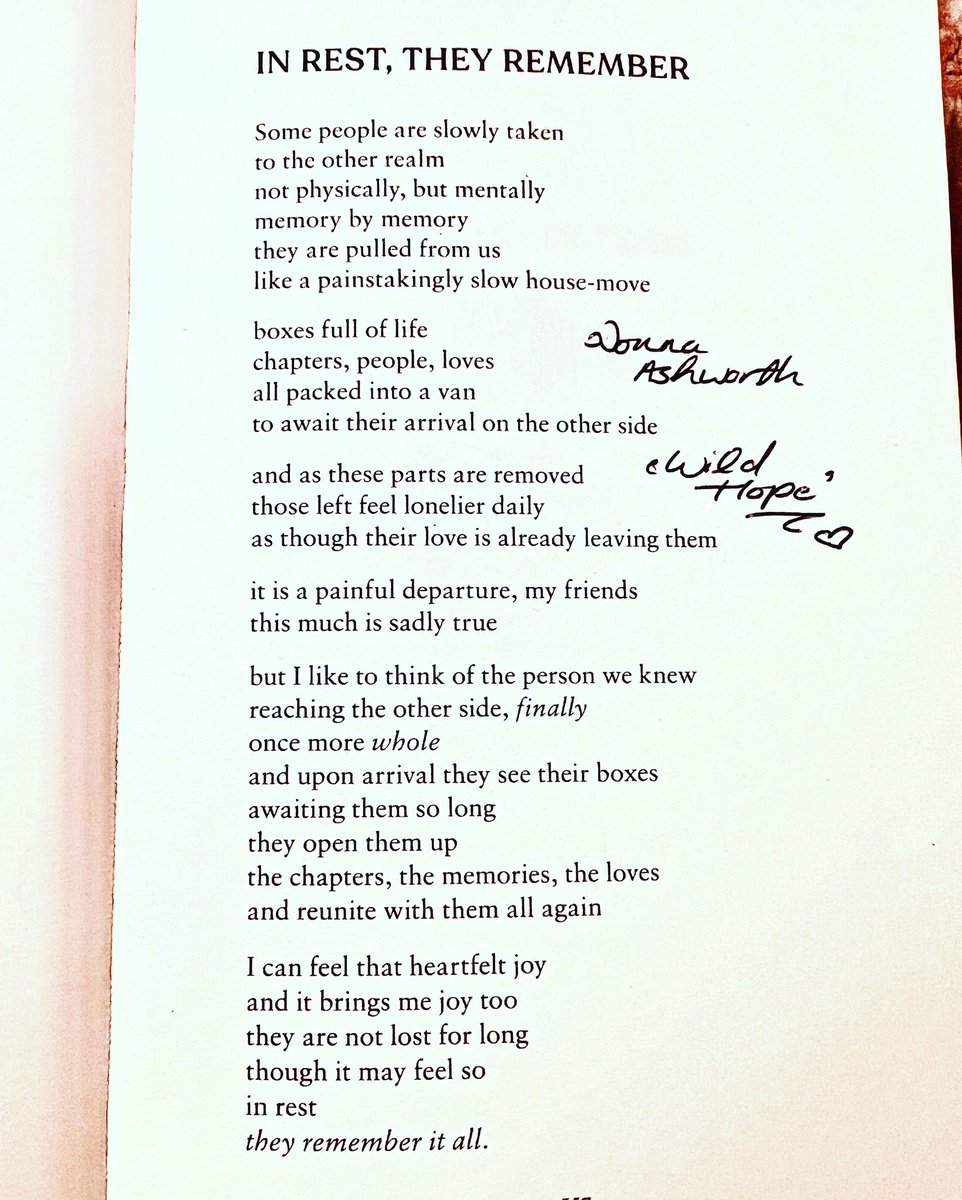 IN REST, THEY REMEMBER
Some people are slowly taken
to the other realm
not physically, but mentally
memory by memory
they are pulled from us
like a painstakingly slow house-move
boxes full of life
chapters, people, loves
all packed into a van
to await their arrival on the other side
Donna
Ashworth
and as these parts are removed
those left feel lonelier daily
as though their love is already leaving them
'Wild
Hope'
it is a painful departure, my friends
this much is sadly true
but I like to think of the person we knew
reaching the other side, finally
once more whole
and upon arrival they see their boxes
awaiting them so long
they open them up
the chapters, the memories, the loves
and reunite with them all again
I can feel that heartfelt joy
and it brings me joy too
they are not lost for long
though it may feel so
in rest
they remember it all.